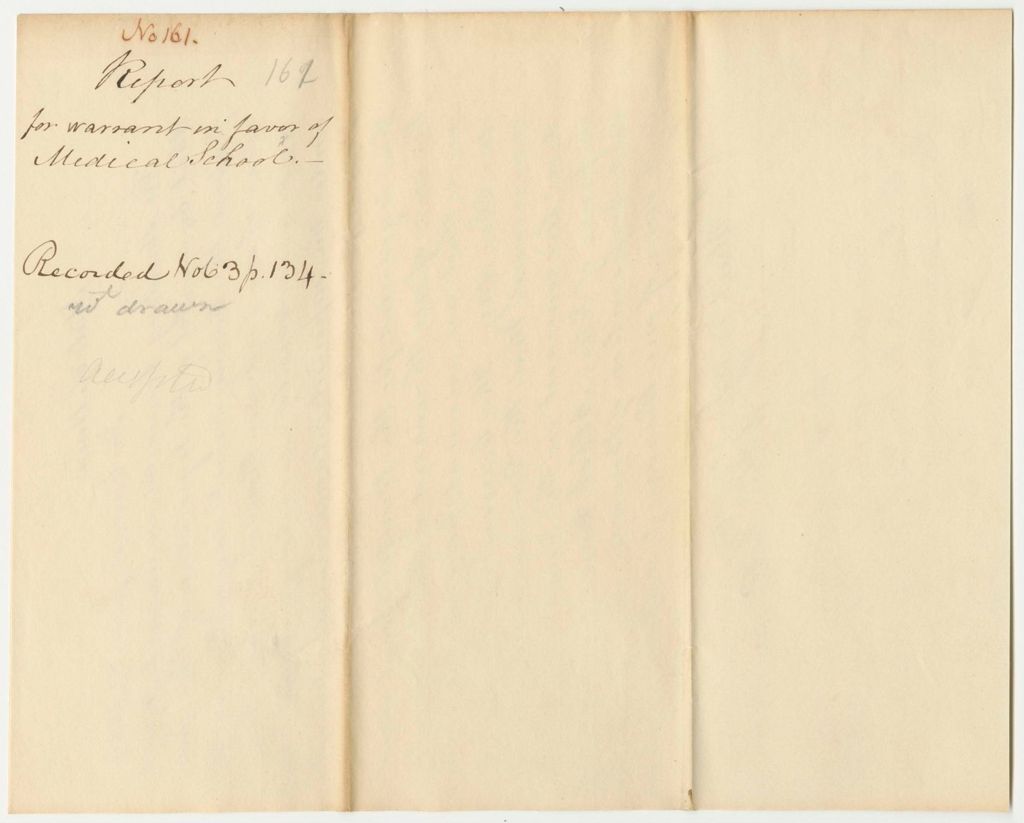 No 161.
Report 162
for warrant in favor of
Medical School. —
Recorded Vol 3 p. 134 -
wt drawn
accepted